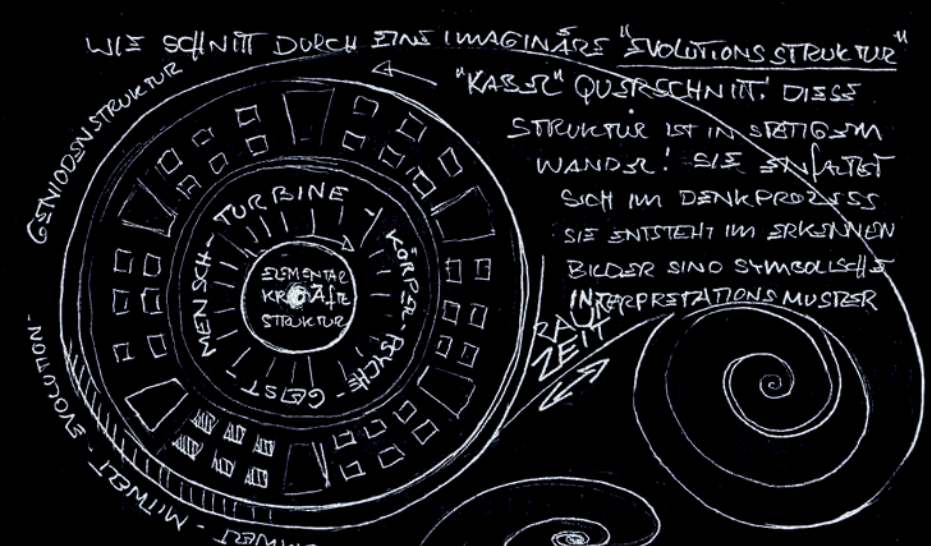 WIE SCHNITT DURCH EINE IMAGINÄRE "EVOLUTIONSSTRUKTUR"
"KABEL" QUERSCHNITT! DIESE
STRUKTUR IST IN STÄTIGEM
WANDEL! SIE ENTFALTET
SICH IM DENKPROZESS
SIE ENTSTEHT IM ERKENNEN
BILDER SIND SYMBOLISCHE
INTERPRETATIONSMUSTER
RAUM
ZEIT
TURBINE -
KÖRPER - PSYCHE - GEIST -
MENSCH -
ELEMENTAR
KRÄFTE
STRUKTUR
- MITWELT - EVOLUTION -